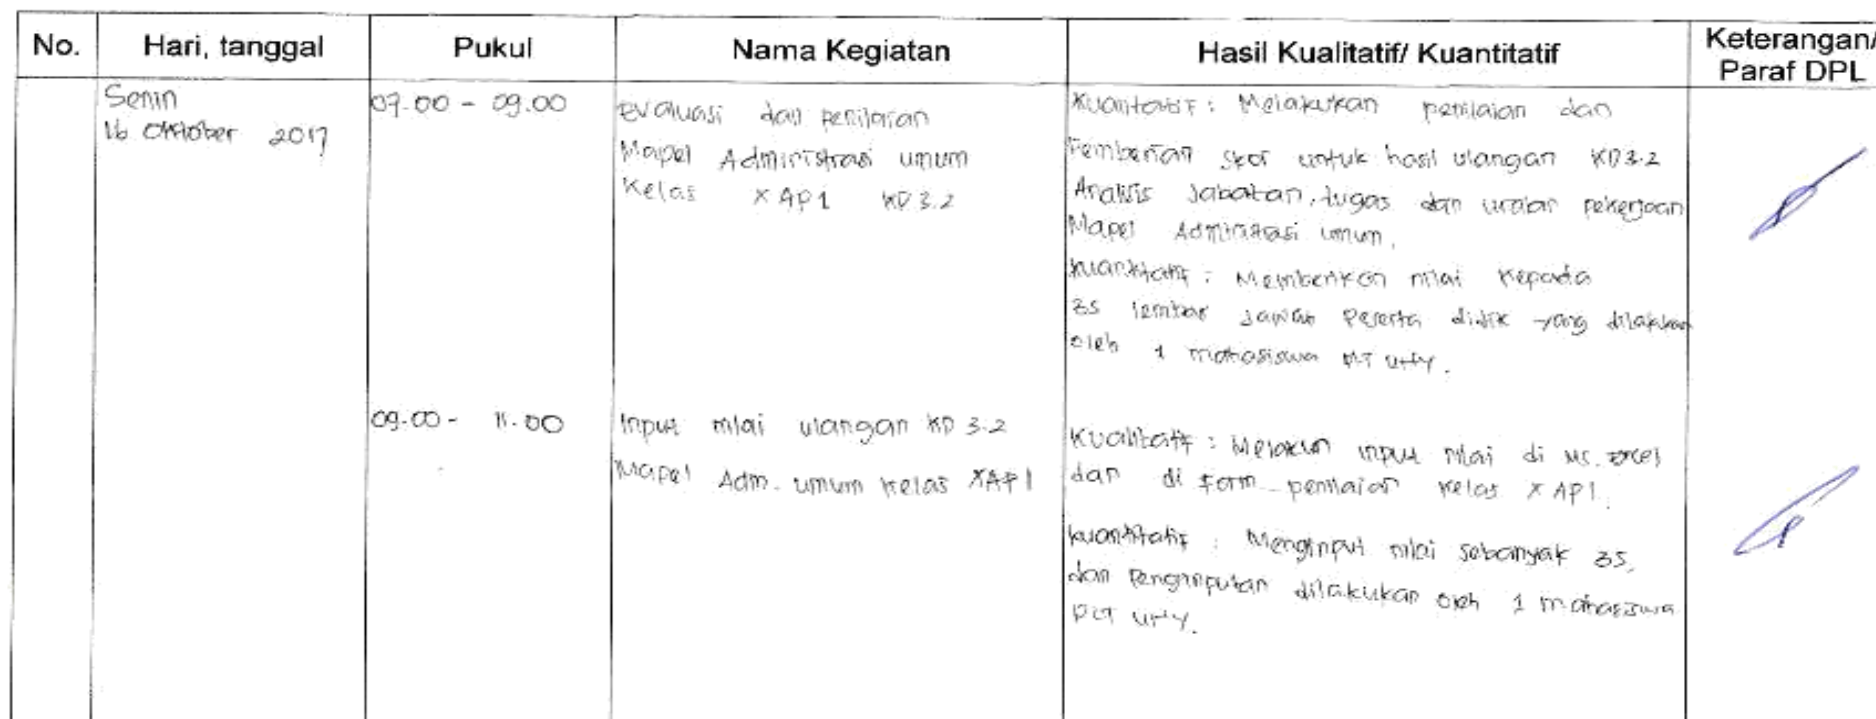 No. Hari, tanggal Pukul Nama Kegiatan Hasil Kualitatif/ Kuantitatif Keterangan/ Paraf DPL
Senin
16 Oktober 2017
07.00 - 09.00
Evaluasi dan penilaian
Mapel Administrasi umum
Kelas X AP 1 KD 3.2
Melakukan penilaian dan
Pemberian skor untuk hasil ulangan KD 3.2
Analisis Jabatan, tugas dan uraian pekerjaan
Mapel umum.
: Memberikan nilai kepada
35 lembar jawab peserta didik yang dilakukan
oleh 1 mahasiswa UNY.
09.00 - 11.00
Input nilai ulangan KD 3.2
Mapel Adm. umum kelas X AP 1
Kualitatif : input nilai di Ms. Excel
dan di form penilaian kelas X AP 1.
Kuantitatif : Menginput nilai sebanyak 35,
dan penginputan dilakukan oleh 1 mahasiswa
PLT UNY.